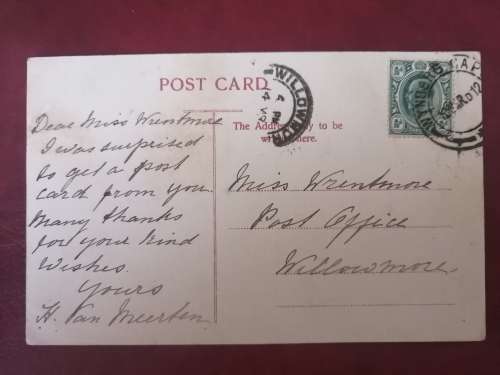 POST CARD
WILLOWMORE
Dear Miss Wrentmore
I was surprised
to get a post
card from you.
Many thanks
for your kind
wishes.
Yours
H. Van Meerten
The Address only to be
here.
Miss Wrentmore
Post Office
Willowmore